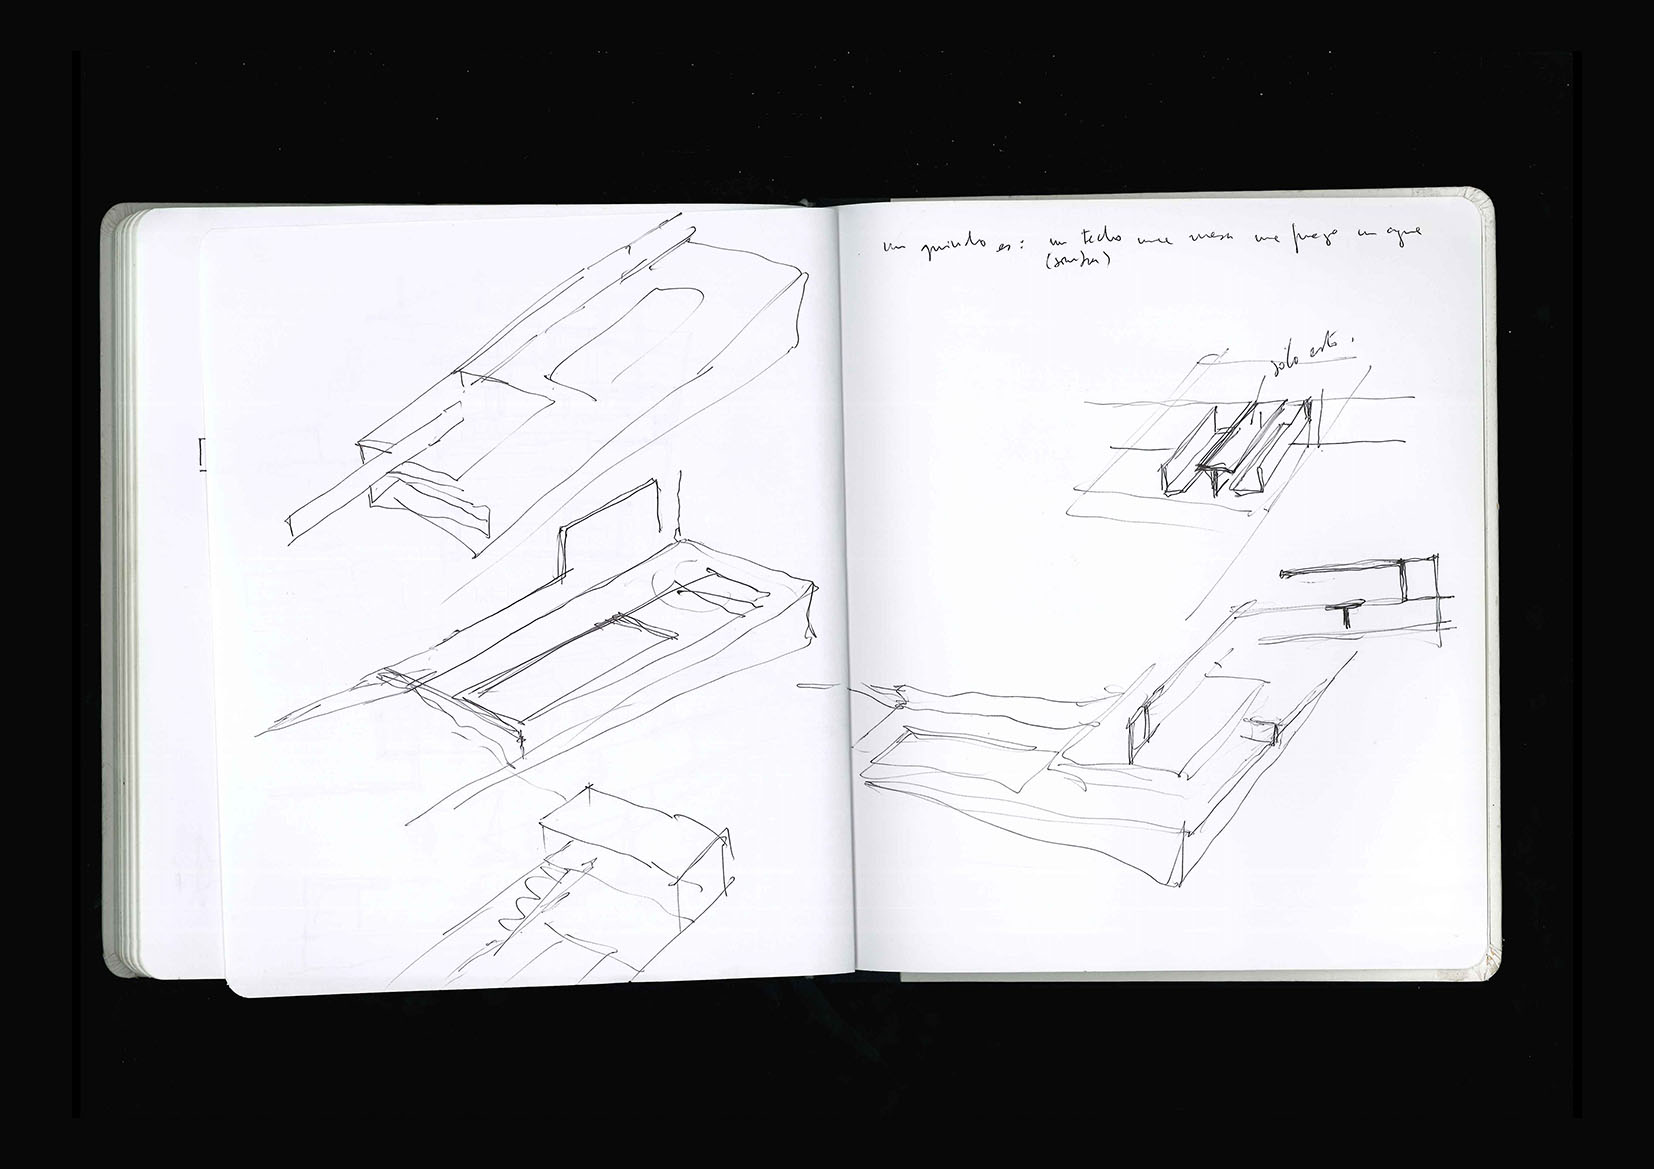 un quincho es: un techo una mesa un fuego un agua
(sombra)
sólo esto.